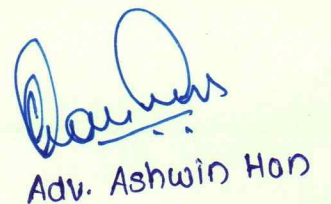 Adv. Ashwin Hon